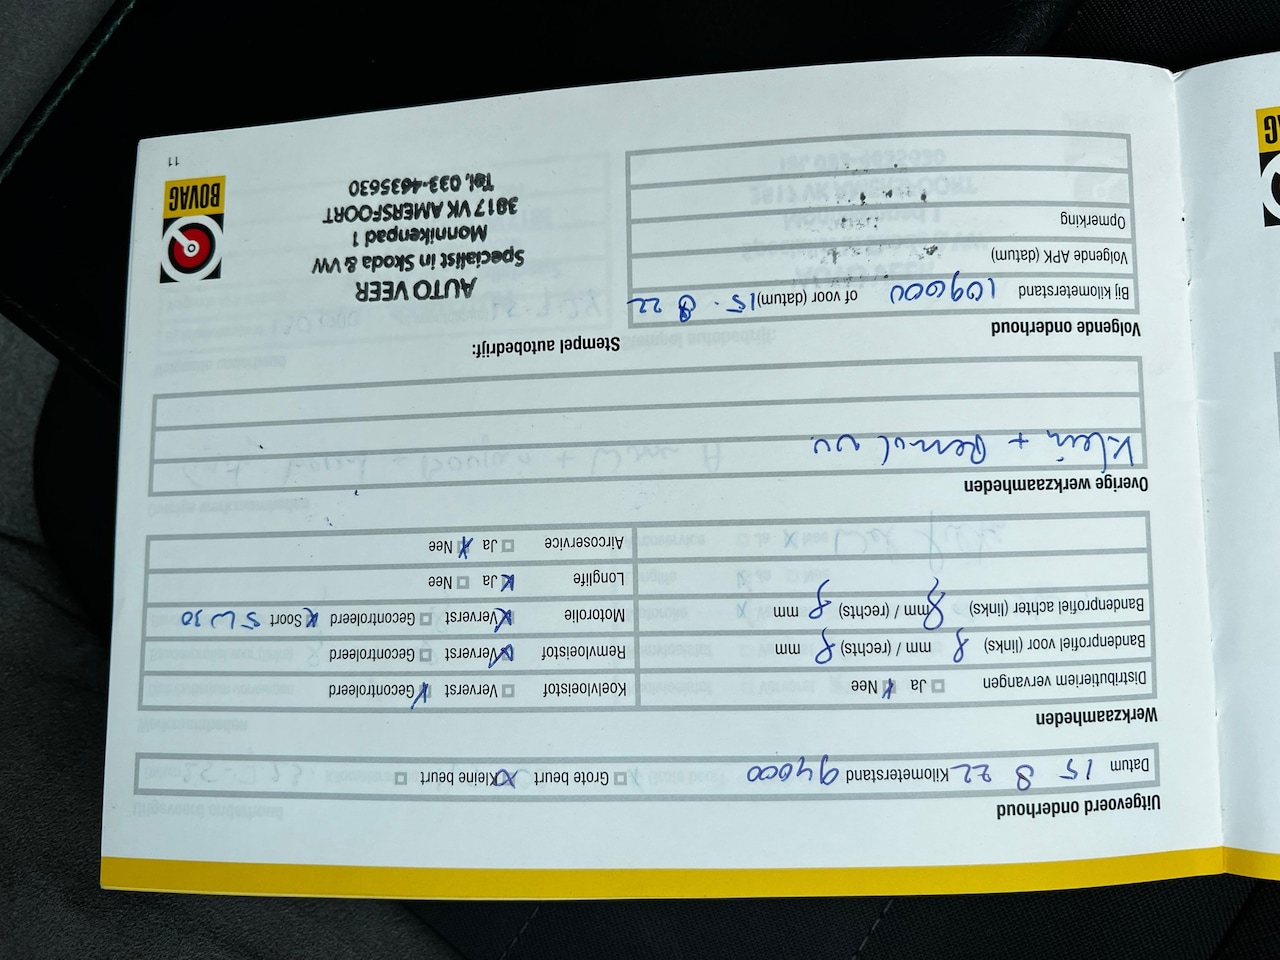 Uitgevoerd onderhoud
Datum 15 8 22 Kilometerstand 94000 Grote beurt Kleine beurt
Werkzaamheden
Distributieriem vervangen Ja Nee
Koelvloeistof Ververst Gecontroleerd
Bandenprofiel voor (links) 8 mm / (rechts) 8 mm
Remvloeistof Ververst Gecontroleerd
Bandenprofiel achter (links) 8 mm / (rechts) 8 mm
Motorolie Ververst Gecontroleerd Soort 5W30
Longlife Ja Nee
Aircoservice Ja Nee
Overige werkzaamheden
Klein +
Volgende onderhoud
Bij kilometerstand 109000 of voor (datum) 15. 8 22
Volgende APK (datum)
Opmerking
Stempel autobedrijf:
AUTO VEER
Specialist in Skoda & VW
Monnikenpad 1
3817 VK AMERSFOORT
Tel. 033-4635630
BOVAG
11